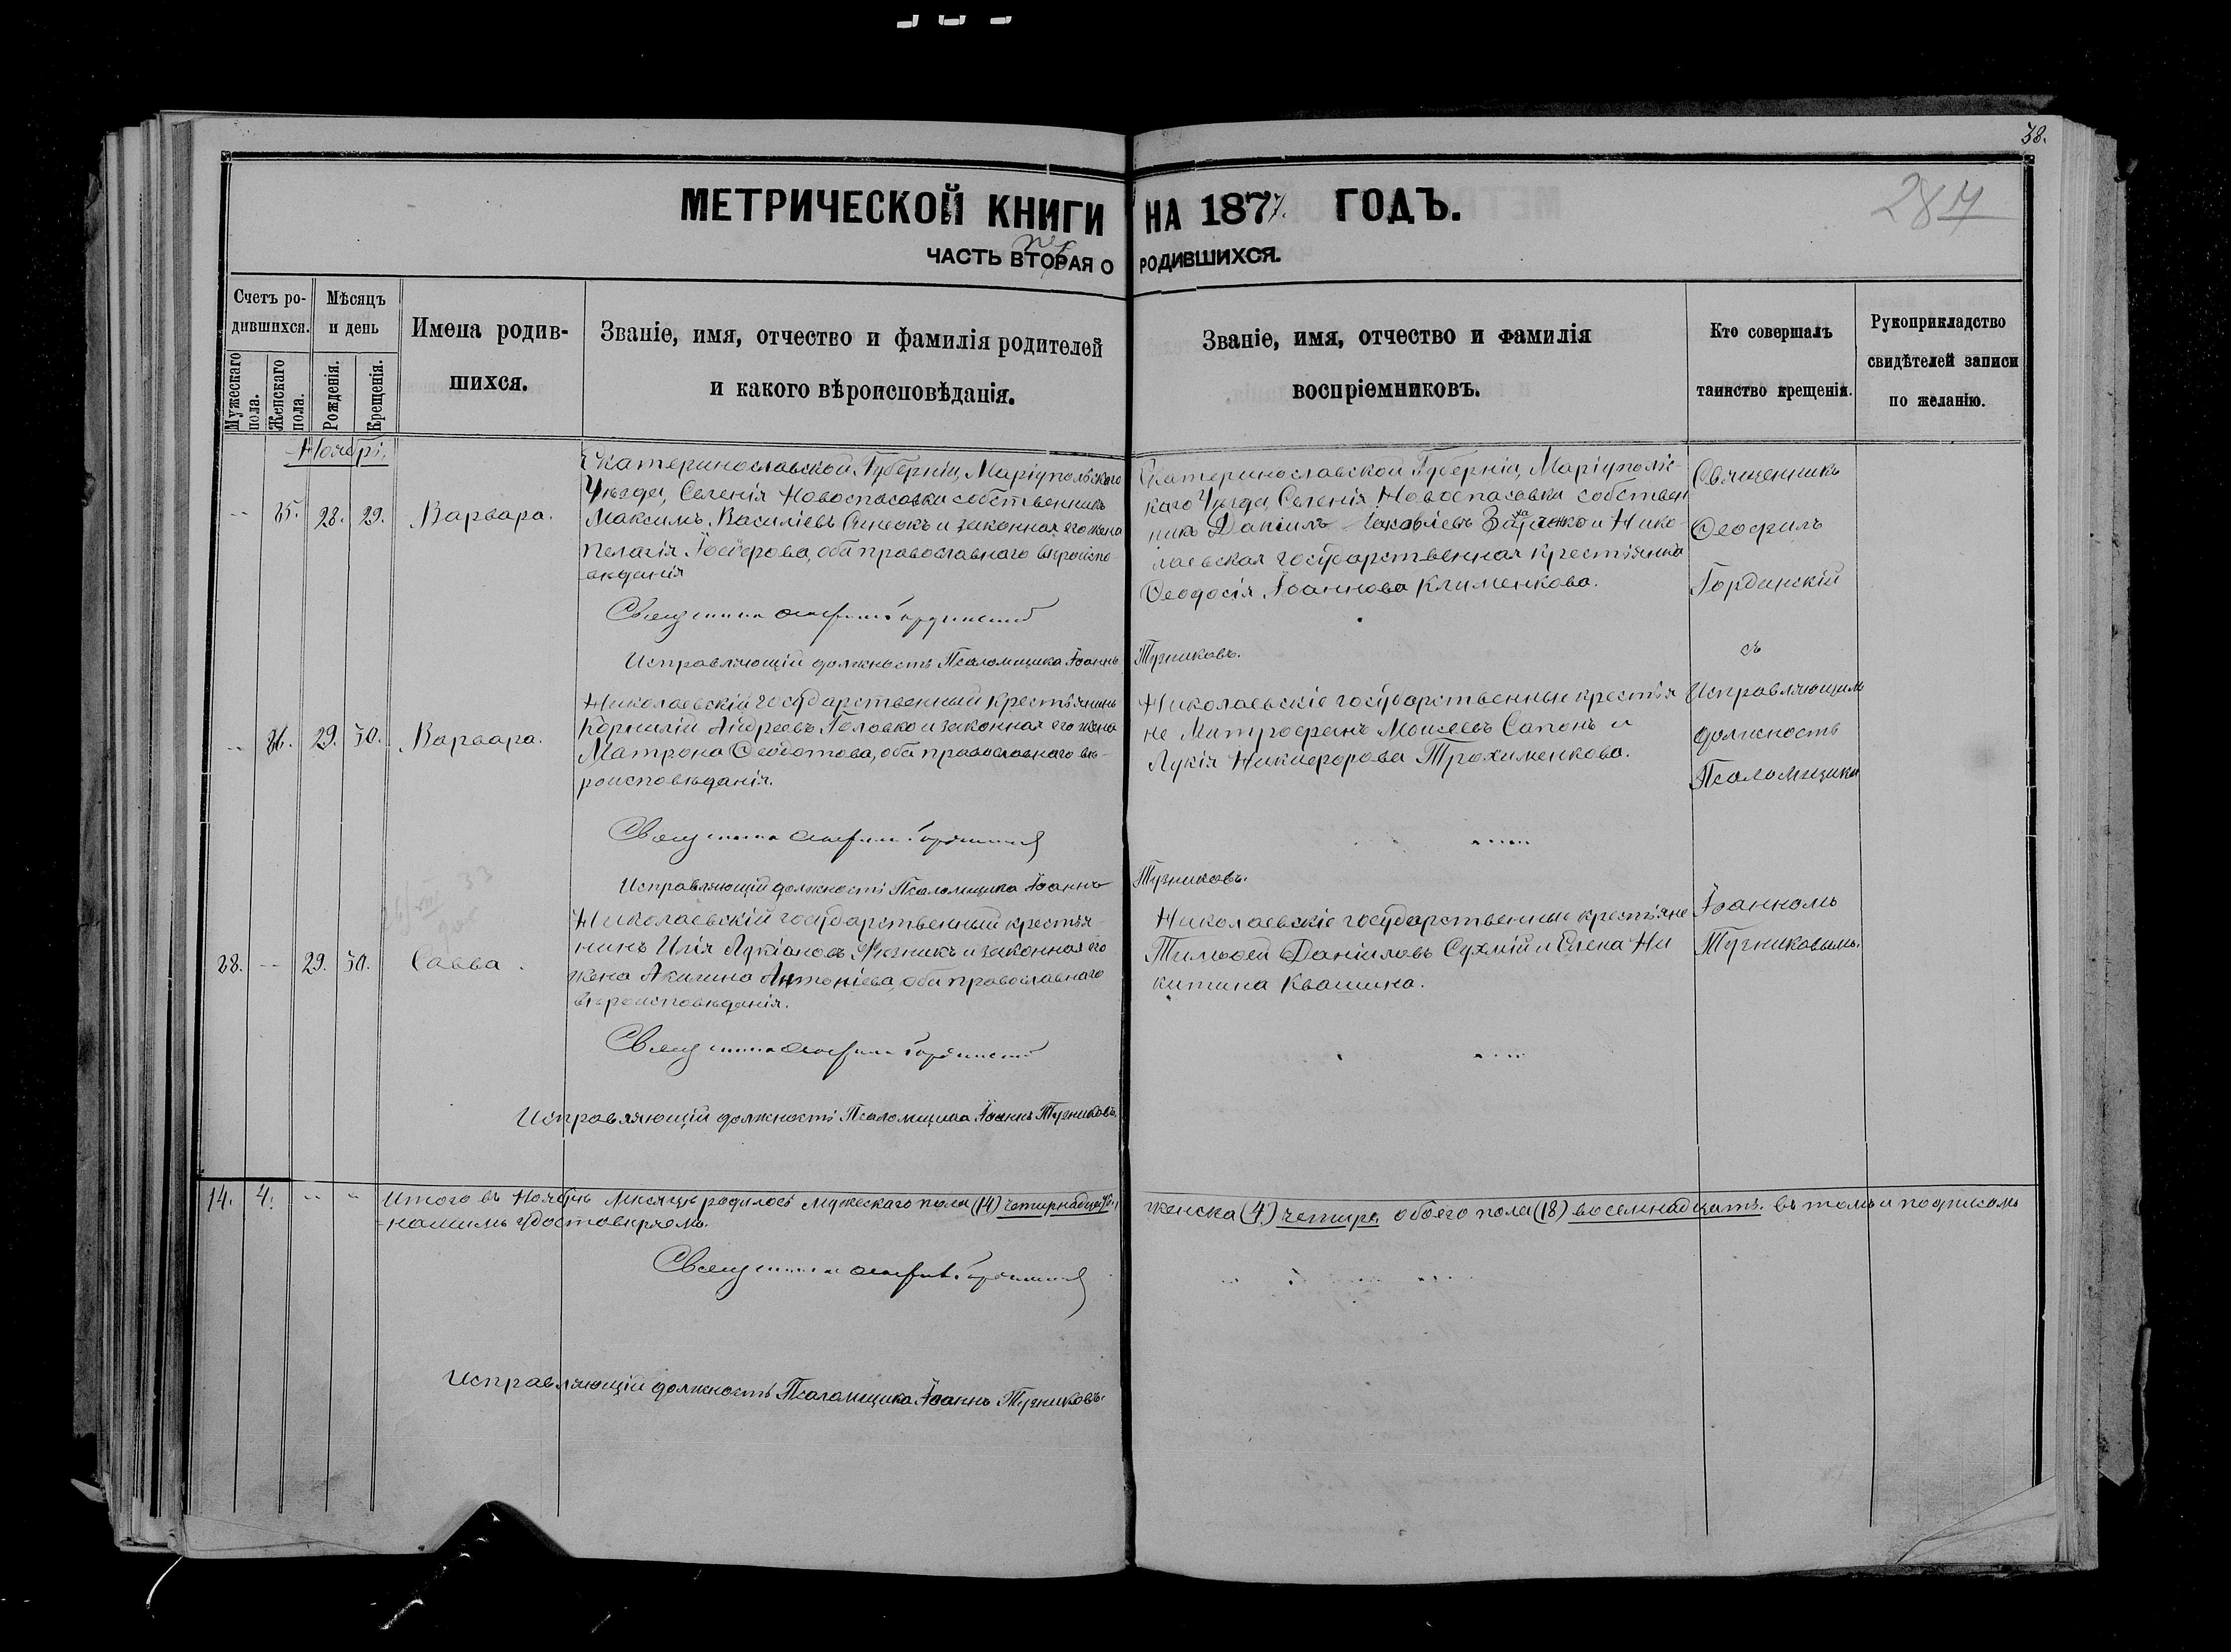 38.
287
МЕТРИЧЕСКОЙ КНИГИ НА 1877. ГОДЪ.
ЧАСТЬ ВТОРАЯ О РОДИВШИХСЯ.
Счетъ ро-
дившихся.
Мужескаго пола.
Женскаго пола.
Мѣсяцъ
и день
Рожденія.
Крещенія.
Имена родив-
шихся.
Званіе, имя, отчество и фамилія родителей
и какого вѣроисповѣданія.
Званіе, имя, отчество и фамилія
воспріемниковъ.
Кто совершалъ
таинство крещенія.
Рукоприкладство
свидѣтелей записи
по желанію.
Ноябрь.
-- 25. 28. 29. Варвара.
Екатеринославской Губерніи, Маріупольскаго
Уѣзда, Селенія Новоспасовки собственникъ
Максимъ Василіевъ и законная его жена
Пелагія Іосифова, оба православнаго вѣроиспо-
вѣданія
Священникъ Ѳеофилъ Гординскій
Исправляющій должность Псаломщика Іоаннъ Тузниковъ.
Екатеринославской Губерніи, Маріуполь-
скаго Уѣзда, Селенія Новоспасовки собствен
никъ Даніилъ Іаковлевъ и Нико-
лаевская государственная крестьянка
Ѳеодосія Іоаннова Клименкова.
Священникъ
Ѳеофилъ
Гординскій
съ
Исправляющимъ
должность
Псаломщика
Іоанномъ
Тузниковымъ.
-- 26. 29. 30. Варвара.
Николаевскій государственный крестьянинъ
Корнилій Андреевъ Головко и законная его жена
Матрона Ѳеодотова, оба православнаго вѣ-
роисповѣданія.
Священникъ Ѳеофилъ Гординскій
Исправляющій должность Псаломщика Іоаннъ Тузниковъ.
Николаевскіе государственные крестья
не Митрофанъ Моисеевъ Сапонъ и
Лукія Никифорова Трохименкова.
28. -- 29. 30. Савва.
Николаевскій государственный крестья-
нинъ Илія Лукіановъ и законная его
жена Акилина Антоніева, оба православнаго
вѣроисповѣданія.
Священникъ Ѳеофилъ Гординскій
Исправляющій должность Псаломщика Іоаннъ Тузниковъ.
Николаевскіе государственные крестьяне
Тимофей Даніиловъ Сухмій и Елена Ни
китина Квашина.
14. 4. -- -- Итого въ Ноябрѣ мѣсяцѣ родилось мужескаго пола (14) четырнадцать, женска (4) четыре, обоего пола (18) восемнадцать. въ томъ и подписомъ
нашимъ удостовѣряемъ.
Священникъ Ѳеофилъ Гординскій
Исправляющій должность Псаломщика Іоаннъ Тузниковъ.